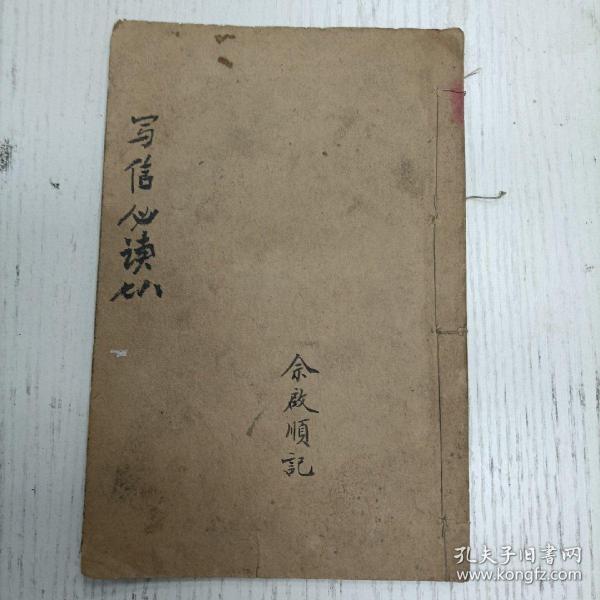 写信必读
七八
余啟順記
孔夫子旧書网
www.kongfz.com